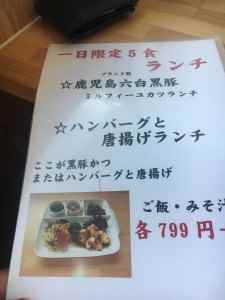 一日限定5食
ランチ
ブランド豚
☆鹿児島六白黒豚
ミルフィーユカツランチ
☆ハンバーグと
唐揚げランチ
ここが黒豚かつ
またはハンバーグと唐揚げ
ご飯・みそ汁
各799円